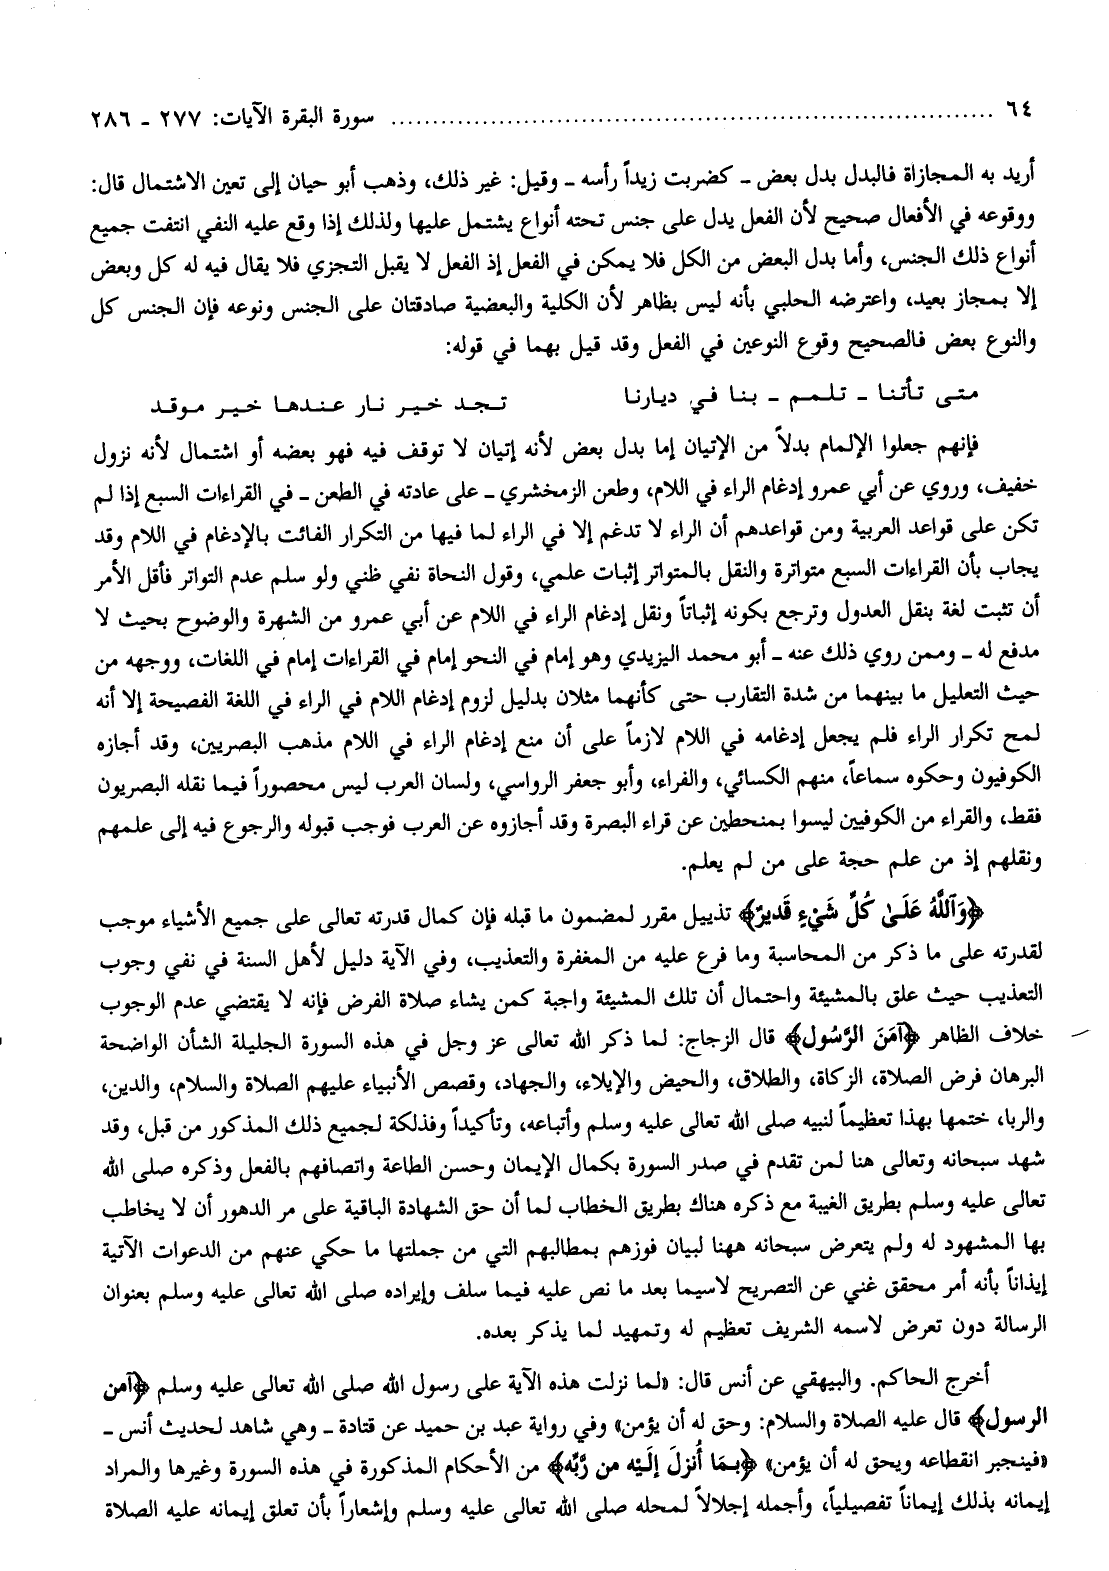 ٦٤ ........................................................................ سورة البقرة الآيات: ٢٧٧ ـ ٢٨٦
أريد به المجازاة فالبدل بدل بعض ـ كضربت زيداً رأسه ـ وقيل: غير ذلك، وذهب أبو حيان إلى تعين الاشتمال قال:
ووقوعه في الأفعال صحيح لأن الفعل يدل على جنس تحته أنواع يشتمل عليها ولذلك إذا وقع عليه النفي انتفت جميع
أنواع ذلك الجنس، وأما بدل البعض من الكل فلا يمكن في الفعل إذ الفعل لا يقبل التجزي فلا يقال فيه له كل وبعض
إلا بمجاز بعيد، واعترضه الحلبي بأنه ليس بظاهر لأن الكلية والبعضية صادقتان على الجنس ونوعه فإن الجنس كل
والنوع بعض فالصحيح وقوع النوعين في الفعل وقد قيل بهما في قوله:
متى تأتنا ـ تلمم ـ بنا في ديارنا تجد خير نار عندها خير موقد
فإنهم جعلوا الإلمام بدلاً من الإتيان إما بدل بعض لأنه إتيان لا توقف فيه فهو بعضه أو اشتمال لأنه نزول
خفيف، وروي عن أبي عمرو إدغام الراء في اللام، وطعن الزمخشري ـ على عادته في الطعن ـ في القراءات السبع إذا لم
تكن على قواعد العربية ومن قواعدهم أن الراء لا تدغم إلا في الراء لما فيها من التكرار الفائت بالإدغام في اللام وقد
يجاب بأن القراءات السبع متواترة والنقل بالمتواتر إثبات علمي، وقول النحاة نفي ظني ولو سلم عدم التواتر فأقل الأمر
أن تثبت لغة بنقل العدول وترجع بكونه إثباتاً ونقل إدغام الراء في اللام عن أبي عمرو من الشهرة والوضوح بحيث لا
مدفع له ـ وممن روي ذلك عنه ـ أبو محمد اليزيدي وهو إمام في النحو إمام في القراءات إمام في اللغات، ووجهه من
حيث التعليل ما بينهما من شدة التقارب حتى كأنهما مثلان بدليل لزوم إدغام اللام في الراء في اللغة الفصيحة إلا أنه
لمح تكرار الراء فلم يجعل إدغامه في اللام لازماً على أن منع إدغام الراء في اللام مذهب البصريين، وقد أجازه
الكوفيون وحكوه سماعاً، منهم الكسائي، والفراء، وأبو جعفر الرواسي، ولسان العرب ليس محصوراً فيما نقله البصريون
فقط، والقراء من الكوفيين ليسوا بمنحطين عن قراء البصرة وقد أجازوه عن العرب فوجب قبوله والرجوع فيه إلى علمهم
ونقلهم إذ من علم حجة على من لم يعلم.
﴿وَٱللَّهُ عَلَىٰ كُلِّ شَيْءٍ قَدِيرٌ﴾ تذييل مقرر لمضمون ما قبله فإن كمال قدرته تعالى على جميع الأشياء موجب
لقدرته على ما ذكر من المحاسبة وما فرع عليه من المغفرة والتعذيب، وفي الآية دليل لأهل السنة في نفي وجوب
التعذيب حيث علق بالمشيئة واحتمال أن تلك المشيئة واجبة كمن يشاء صلاة الفرض فإنه لا يقتضي عدم الوجوب
خلاف الظاهر ﴿آمَنَ الرَّسُول﴾ قال الزجاج: لما ذكر الله تعالى عز وجل في هذه السورة الجليلة الشأن الواضحة
البرهان فرض الصلاة، الزكاة، والطلاق، والحيض والإيلاء، والجهاد، وقصص الأنبياء عليهم الصلاة والسلام، والدين،
والربا، ختمها بهذا تعظيماً لنبيه صلى الله تعالى عليه وسلم وأتباعه، وتأكيداً وفذلكة لجميع ذلك المذكور من قبل، وقد
شهد سبحانه وتعالى هنا لمن تقدم في صدر السورة بكمال الإيمان وحسن الطاعة واتصافهم بالفعل وذكره صلى الله
تعالى عليه وسلم بطريق الغيبة مع ذكره هناك بطريق الخطاب لما أن حق الشهادة الباقية على مر الدهور أن لا يخاطب
بها المشهود له ولم يتعرض سبحانه ههنا لبيان فوزهم بمطالبهم التي من جملتها ما حكي عنهم من الدعوات الآتية
إيذاناً بأنه أمر محقق غني عن التصريح لاسيما بعد ما نص عليه فيما سلف وإيراده صلى الله تعالى عليه وسلم بعنوان
الرسالة دون تعرض لاسمه الشريف تعظيم له وتمهيد لما يذكر بعده.
أخرج الحاكم. والبيهقي عن أنس قال: «لما نزلت هذه الآية على رسول الله صلى الله تعالى عليه وسلم ﴿آمن
الرسول﴾ قال عليه الصلاة والسلام: وحق له أن يؤمن» وفي رواية عبد بن حميد عن قتادة ـ وهي شاهد لحديث أنس ـ
«فينجبر انقطاعه ويحق له أن يؤمن» ﴿بمَا أُنزلَ إلَيْه من رَّبِّه﴾ من الأحكام المذكورة في هذه السورة وغيرها والمراد
إيمانه بذلك إيماناً تفصيلياً، وأجمله إجلالاً لمحله صلى الله تعالى عليه وسلم وإشعاراً بأن تعلق إيمانه عليه الصلاة